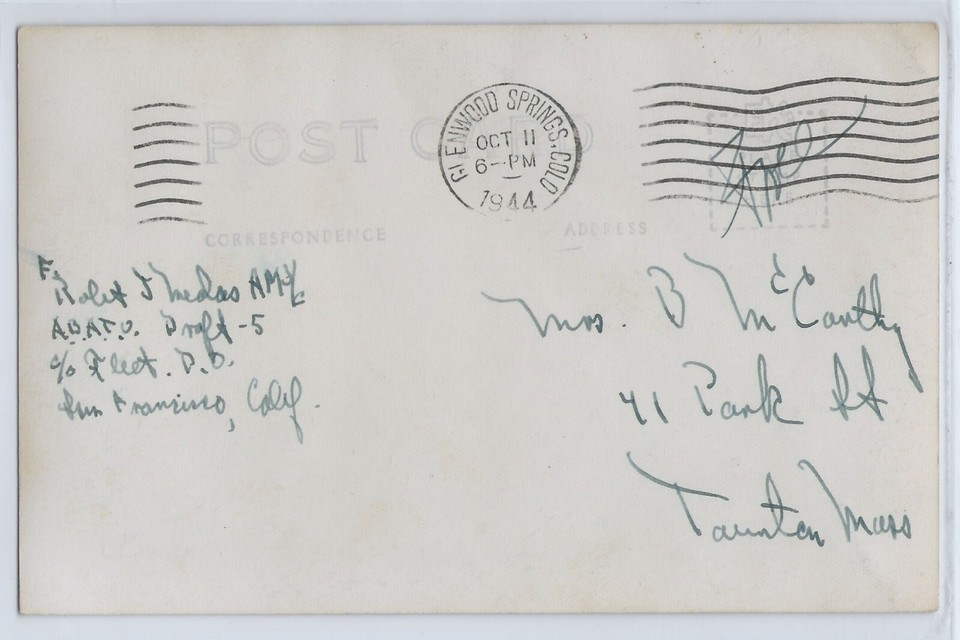 POST CARD
GLENWOOD SPRINGS, COLO
OCT 11
6-PM
1944
Free
CORRESPONDENCE
ADDRESS
F.
Robt J Medas AM
A.B.A.T.U. Draft-5
c/o Fleet. P.O.
San Francisco, Calif.
Mrs. B McCarthy
41 Park St
Taunton Mass